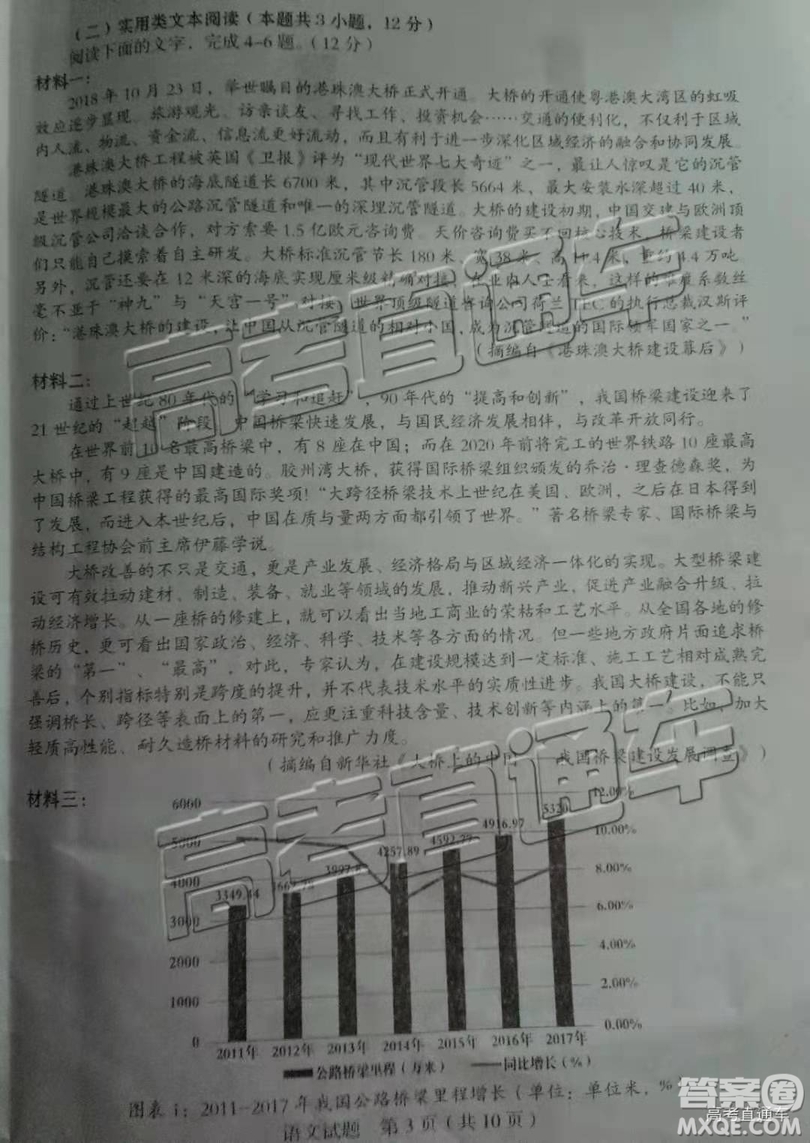 （二）实用类文本阅读（本题共3小题，12分）
阅读下面的文字，完成4-6题。（12分）
材料一：
2018年10月23日，举世瞩目的港珠澳大桥正式开通。大桥的开通使粤港澳大湾区的虹吸
效应逐步显现。旅游观光、访亲谈友、寻找工作、投资机会……交通的便利化，不仅利于区域
内人流、物流、资金流、信息流更好流动，而且有利于进一步深化区域经济的融合和协同发展。
港珠澳大桥工程被英国《卫报》评为“现代世界七大奇迹”之一，最让人惊叹是它的沉管
隧道。港珠澳大桥的海底隧道长6700米，其中沉管段长5664米，最大安装水深超过40米，
是世界规模最大的公路沉管隧道和唯一的深埋沉管隧道。大桥的建设初期，中国交建与欧洲顶
级沉管公司洽谈合作，对方索要1.5亿欧元咨询费。天价咨询费买不回核心技术，桥梁建设者
们只能自己摸索着自主研发。大桥标准沉管节长180米，宽38米、高11.4米，重约 万吨。
另外，沉管还要在12米深的海底实现厘米级精确对接，在业内人士看来，这样的难度系数丝
毫不亚于“神九”与“天宫一号”对接。世界顶级隧道咨询公司荷兰TEC的执行总裁汉斯评
价：“港珠澳大桥的建设，让中国从沉管隧道的相对小国，成为沉管隧道的国际领军国家之一。”
（摘编自《港珠澳大桥建设幕后》）
材料二：
通过上世纪80年代的“学习和追赶”，90年代的“提高和创新”，我国桥梁建设迎来了
21世纪的“赶超”阶段，中国桥梁快速发展，与国民经济发展相伴，与改革开放同行。
在世界前10名最高桥梁中，有8座在中国；而在2020年前将完工的世界铁路10座最高
大桥中，有9座是中国建造的。胶州湾大桥，获得国际桥梁组织颁发的乔治·理查德森奖，为
中国桥梁工程获得的最高国际奖项！“大跨径桥梁技术上世纪在美国、欧洲，之后在日本得到
了发展，而进入本世纪后，中国在质与量两方面都引领了世界。”著名桥梁专家、国际桥梁与
结构工程协会前主席伊藤学说。
大桥改善的不只是交通，更是产业发展、经济格局与区域经济一体化的实现。大型桥梁建
设可有效拉动建材、制造、装备、就业等领域的发展，推动新兴产业，促进产业融合升级、拉
动经济增长。从一座桥的修建上，就可以看出当地工商业的荣枯和工艺水平。从全国各地的修
桥历史，更可看出国家政治、经济、科学、技术等各方面的情况。但一些地方政府片面追求桥
梁的“第一”、“最高”，对此，专家认为，在建设规模达到一定标准、施工工艺相对成熟完
善后，个别指标特别是跨度的提升，并不代表技术水平的实质性进步。我国大桥建设，不能只
强调桥长、跨径等表面上的第一，应更注重科技含量、技术创新等内涵上的第一。比如，加大
轻质高性能、耐久造桥材料的研究和推广力度。
（摘编自新华社《大桥上的中国——我国桥梁建设发展调查》）
材料三：
6000 5000 4000 3000 2000 1000 0
12.00% 10.00% 8.00% 6.00% 4.00% 2.00% 0.00%
3349.44 4257.89 4592.77 4916.97 5320
2011年 2012年 2013年 2014年 2015年 2016年 2017年
公路桥梁里程（万米） 同比增长（%）
图表1：2011-2017年我国公路桥梁里程增长（单位：单位米，%）
语文试题 第3页（共10页）
高考直通车
高考直通车
高考直通车
答案圈
MXQE.COM
高考直通车